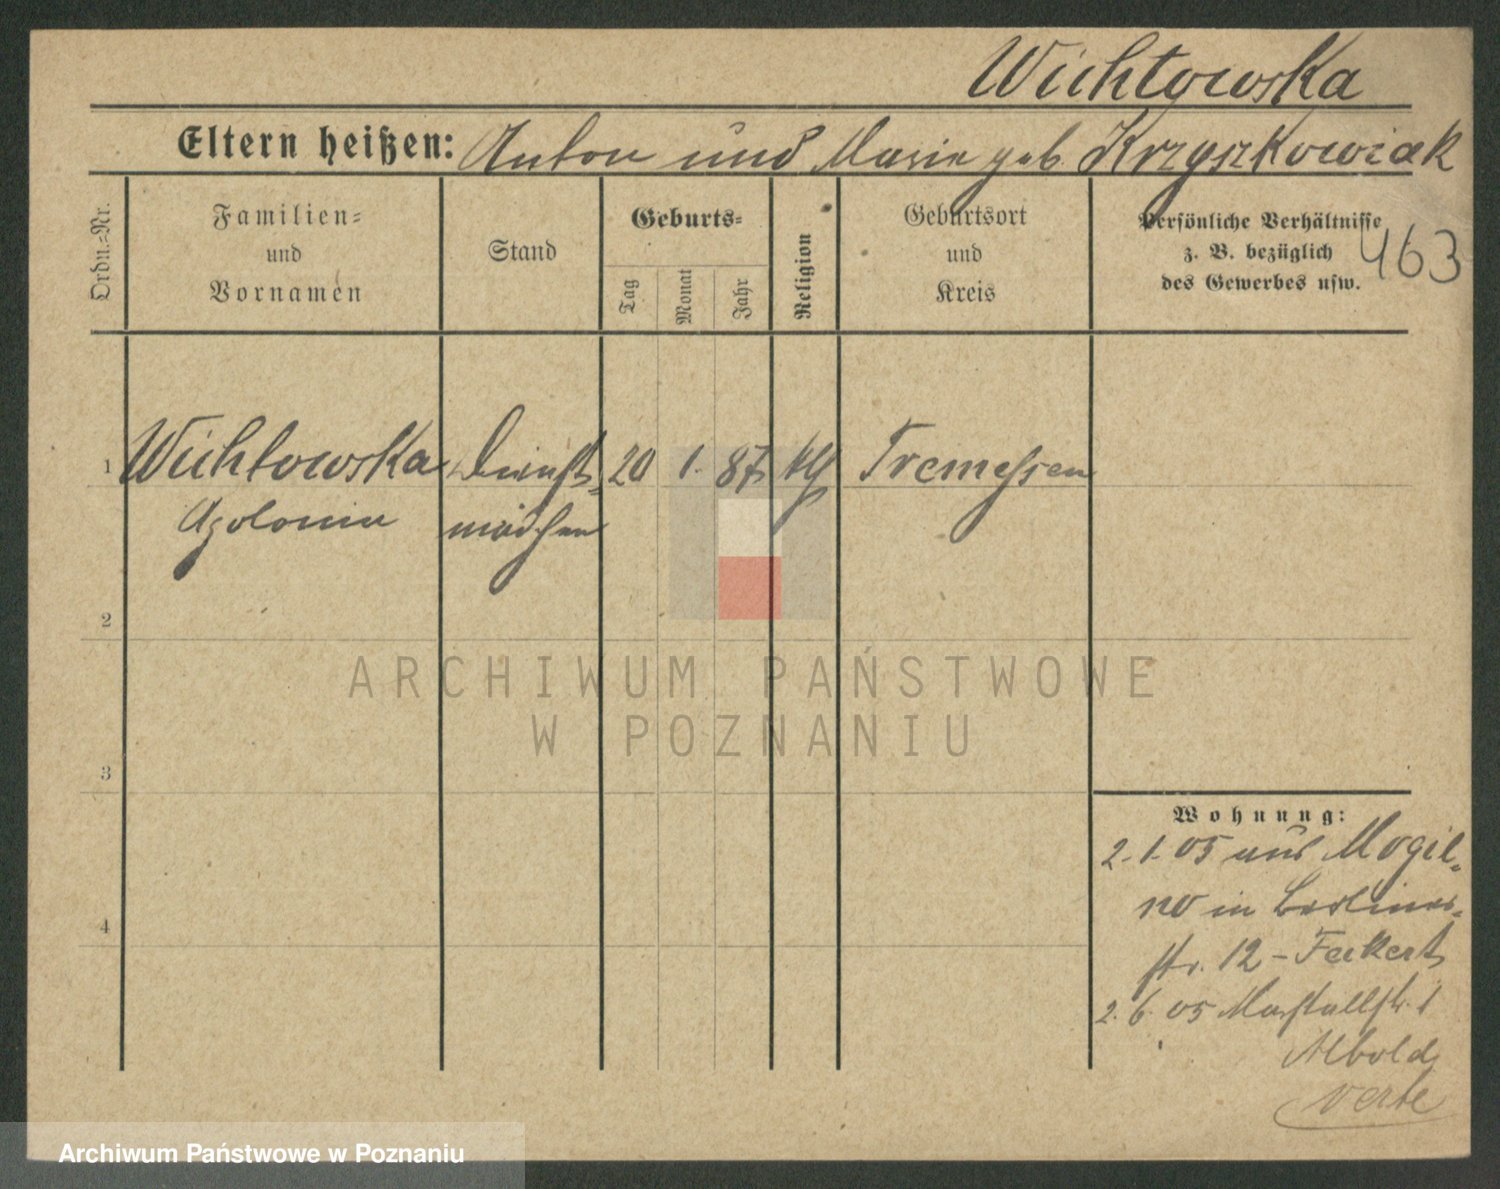 Wichtowska
Eltern heißen: Anton und Marie geb. Krzyszkowiak
Ordn.-Nr.
Familien-
und
Vornamen
Stand
Geburts-
Tag
Monat
Jahr
Religion
Geburtsort
und
Kreis
Persönliche Verhältnisse
z. B. bezüglich
des Gewerbes usw.
463
1 Wichtowska Dienst- 20 1. 87 kth Tremessen
Apolonia mädchen
2
3
4
ARCHIWUM PAŃSTWOWE
W POZNANIU
Wohnung:
2.1.05 aus Mogil-
no in Berliner-
str. 12 -
2.6.05 Marstallstr. 1
verte
Archiwum Państwowe w Poznaniu